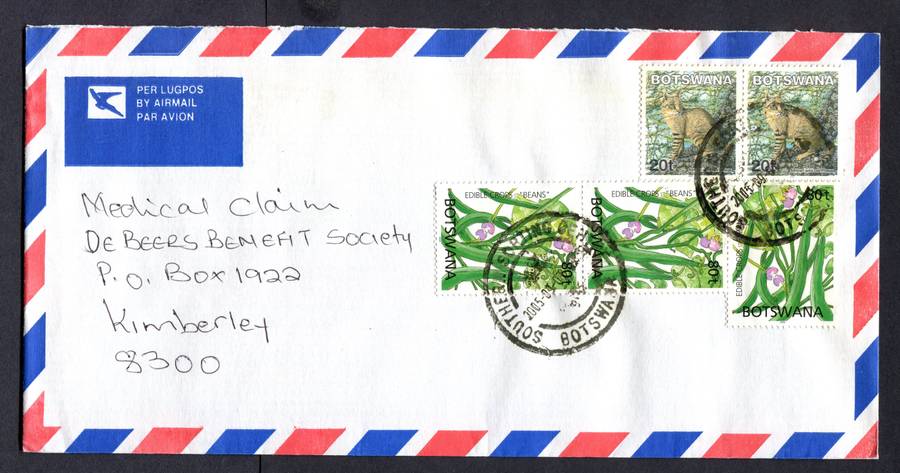 PER LUGPOS
BY AIRMAIL
PAR AVION
BOTSWANA
20t
BOTSWANA
20t
Medical Claim
DE BEERS BENEFIT Society
P.O. Box 1922
Kimberley
8300
EDIBLE CROPS - "BEANS"
BOTSWANA
80t
EDIBLE CROPS - "BEANS"
BOTSWANA
80t
80t
EDIBLE CROPS
BOTSWANA
SORTING
2005-
SOUTHER
BOTSWANA
2005-
SOUTHE
BOTS